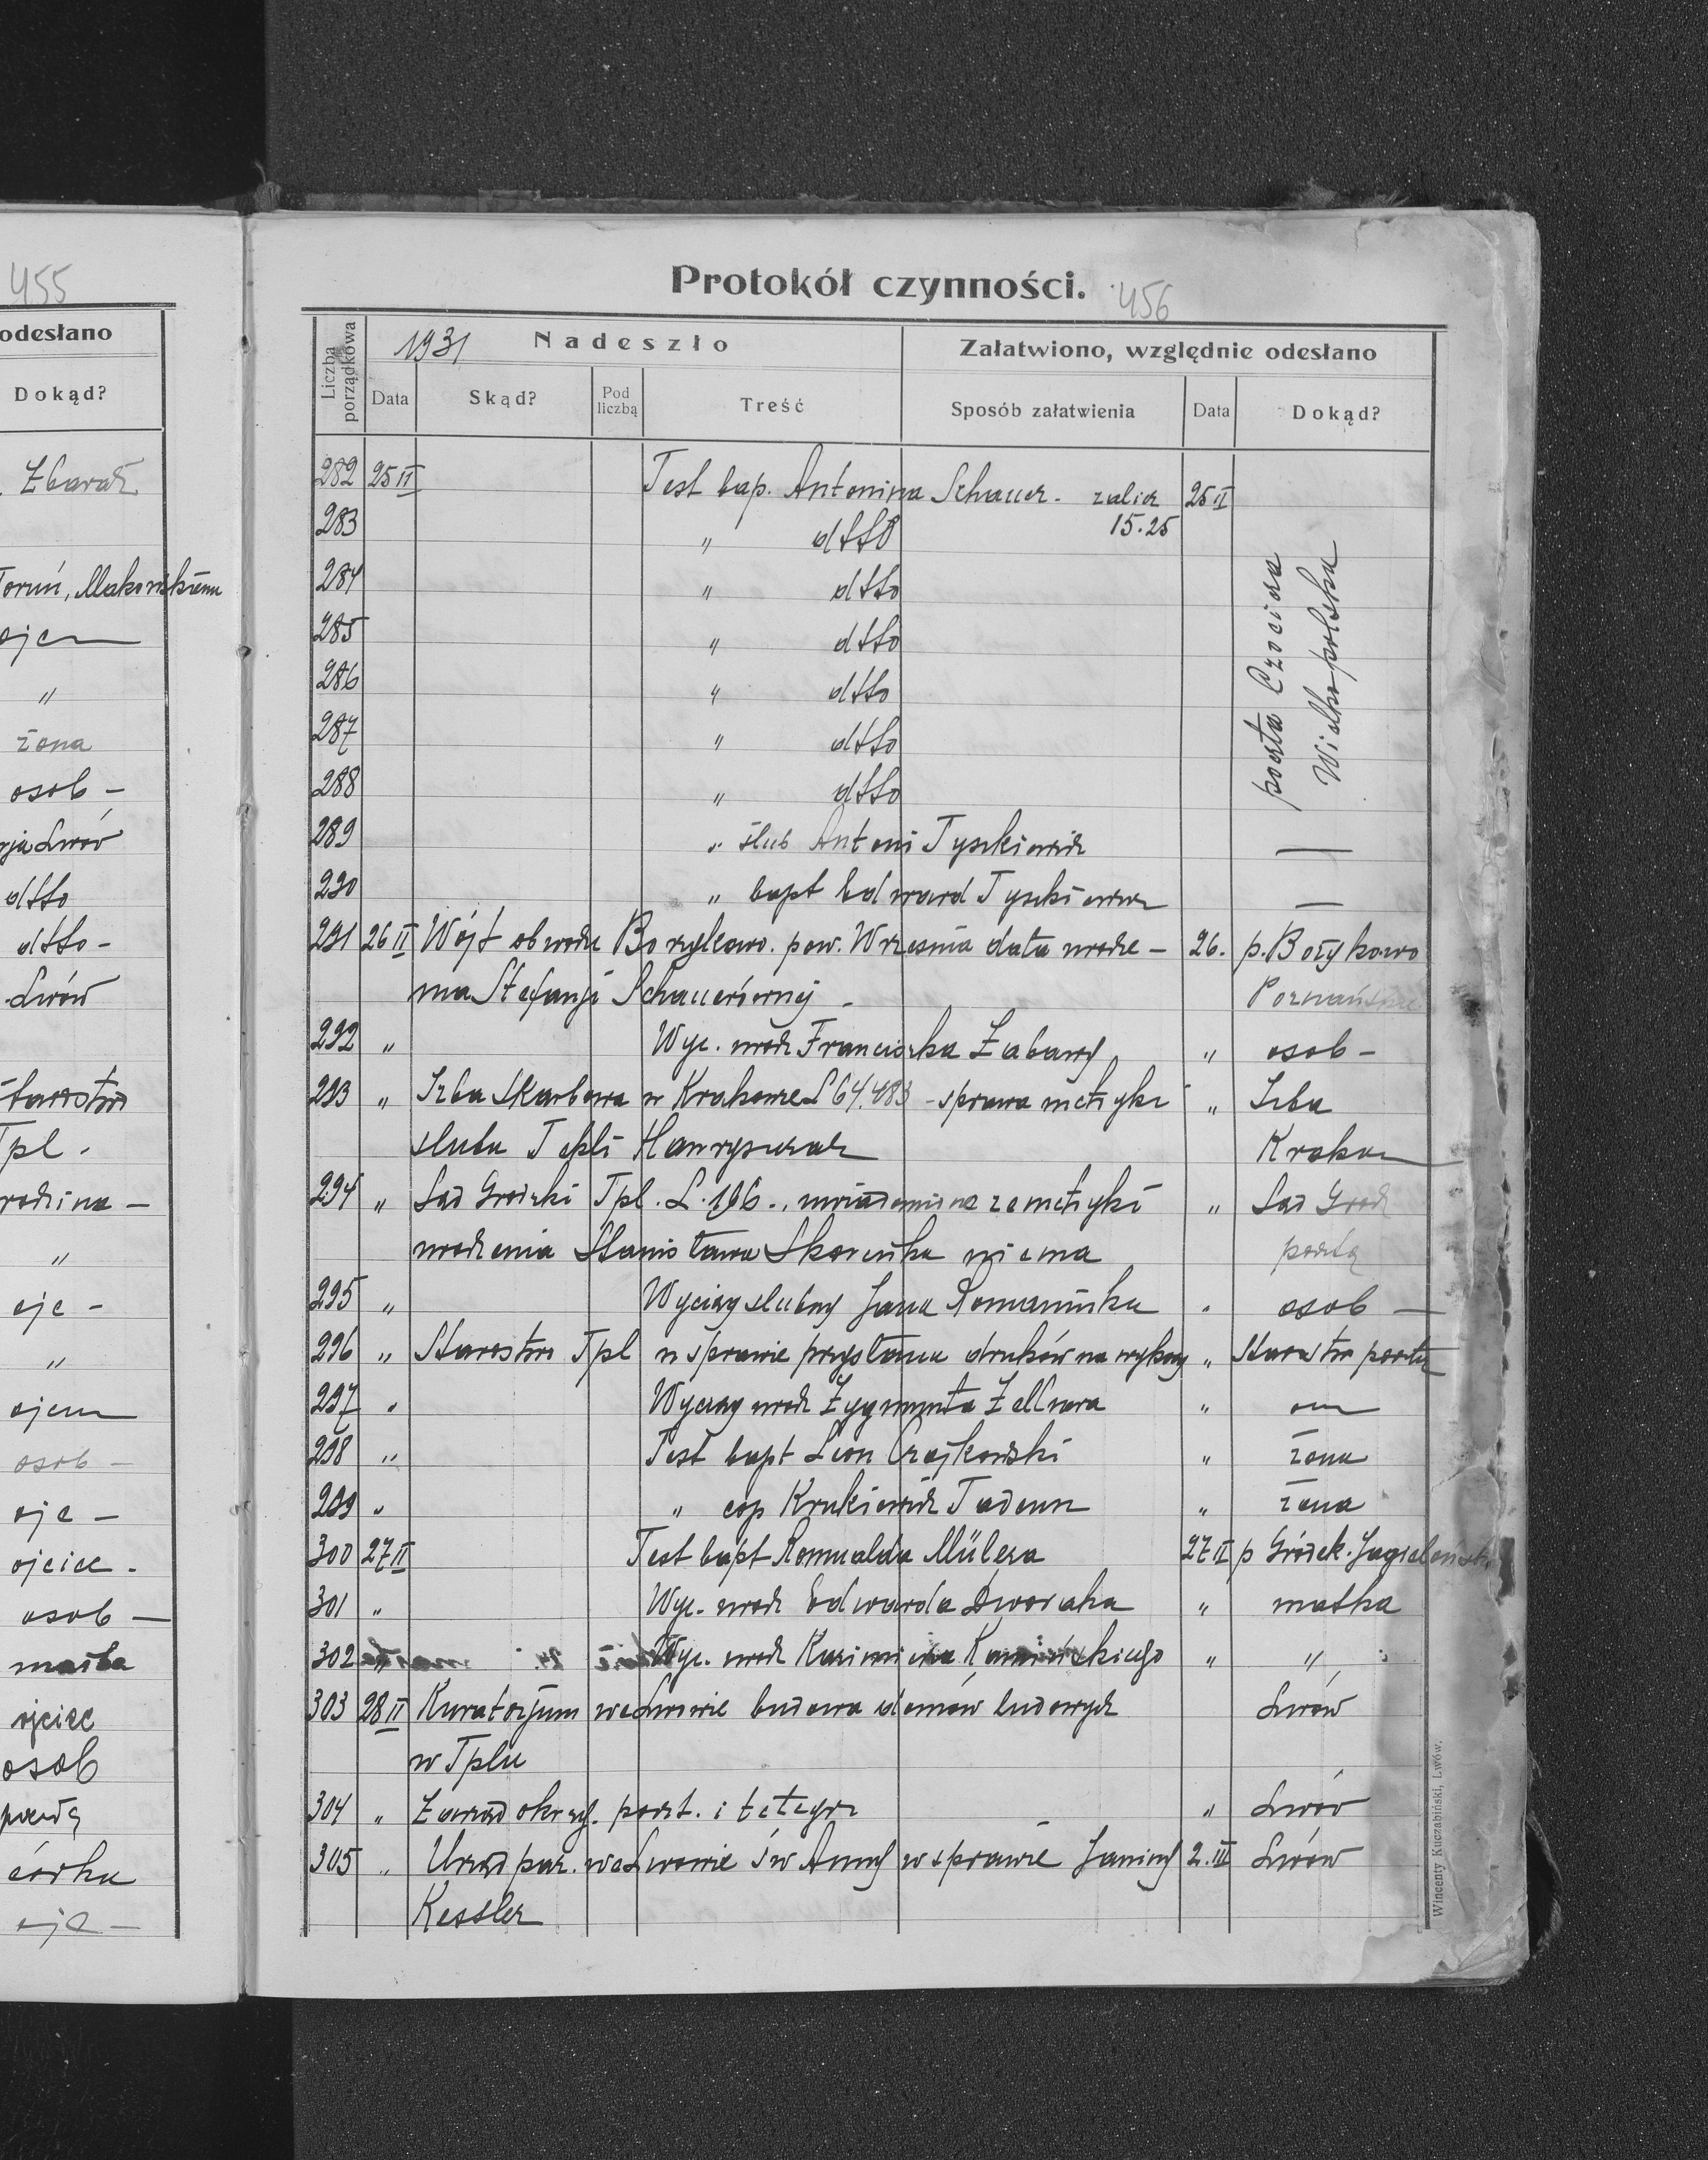 455
odesłano
Dokąd?
Zbaraż
Toruń, Makowskiemu
ojciec
"
żona
osob -
Lwów
dtto
dtto -
Lwów
Starostwo
Tpl.
rodzina -
"
ojc -
"
ojciec
osob -
ojc -
ojciec -
osob -
matka
ojciec
osob
pocztą
córka
ojc -
Protokół czynności. 456
Liczba porządkowa
1931 Nadeszło
Załatwiono, względnie odesłano
Data Skąd? Pod liczbą Treść Sposób załatwienia Data Dokąd?
282 25 II Test bap. Antonina Schauer - zalicz 25 II
283 " dtto 15.25
284 " dtto
285 " dtto
286 " dtto
287 " dtto
288 " dtto
poczta
Wielkopolska
289 " ślub Antoni Tyszkiewicz —
290 " bapt Edward Tyszkiewicz —
291 26 II Wójt obwodu Borzykowo. pow. Września data urodze - 26. p. Borzykowo
nia Stefanji Schauerównej - Poznańskie
292 " Wyc. urodz Franciszka Zabawy " osob -
293 " Izba Skarbowa w Krakowie L 64.483 - sprawa metryki " Izba
ślubu Tekli Kraków
294 " Sąd Grodzki Tpl. L. 196 . uwiadomienie że metryki " Sąd Grodz
urodzenia Stanisława niema pocztą
295 " Wyciąg ślubny Jana Romaniuka " osob —
296 " Starostwo Tpl w sprawie przysłania druków na wykazy " Starostwo pocztą
297 " Wyciąg urodz Zygmunta Zellnera "
298 " Test bapt Leon Czajkowski " żona
299 " " cop Krukiewicz Tadeusz " żona
300 27 II Test bapt Romualda Mülera 27 II p Gródek. Jagieloński
301 " Wyc. urodz Edwarda Dworaka " matka
302 " Wyc. urodz Kazimierza Kamińskiego " "
303 28 II Kuratorjum we Lwowie budowa domów ludowych Lwów
w Tplu
304 " Zarząd okręg. poczt. i telegr " Lwów
305 " Urząd par. we Lwowie św Anny w sprawie Janiny 2. III Lwów
Kessler
Wincenty Kuczabiński, Lwów.